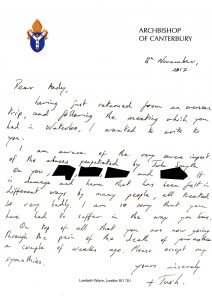 ARCHBISHOP
OF CANTERBURY
8th November,
2017
Dear Andy,
Having just returned from an overseas
trip, and following the meeting which you
had in Waterloo, I wanted to write to
you.
I am aware of the very severe impact
of the abuse perpetrated by John Smyth
On you,
is damage and harm that has been felt in
different ways by many people, all treated
so very badly. I am so sorry that you
have had to suffer in the way you have.
On top of all that you are now going
through the pain of the death of
a couple of weeks ago. Please accept my
sympathies.
Yours sincerely
+
Lambeth Palace, London SE1 7JU